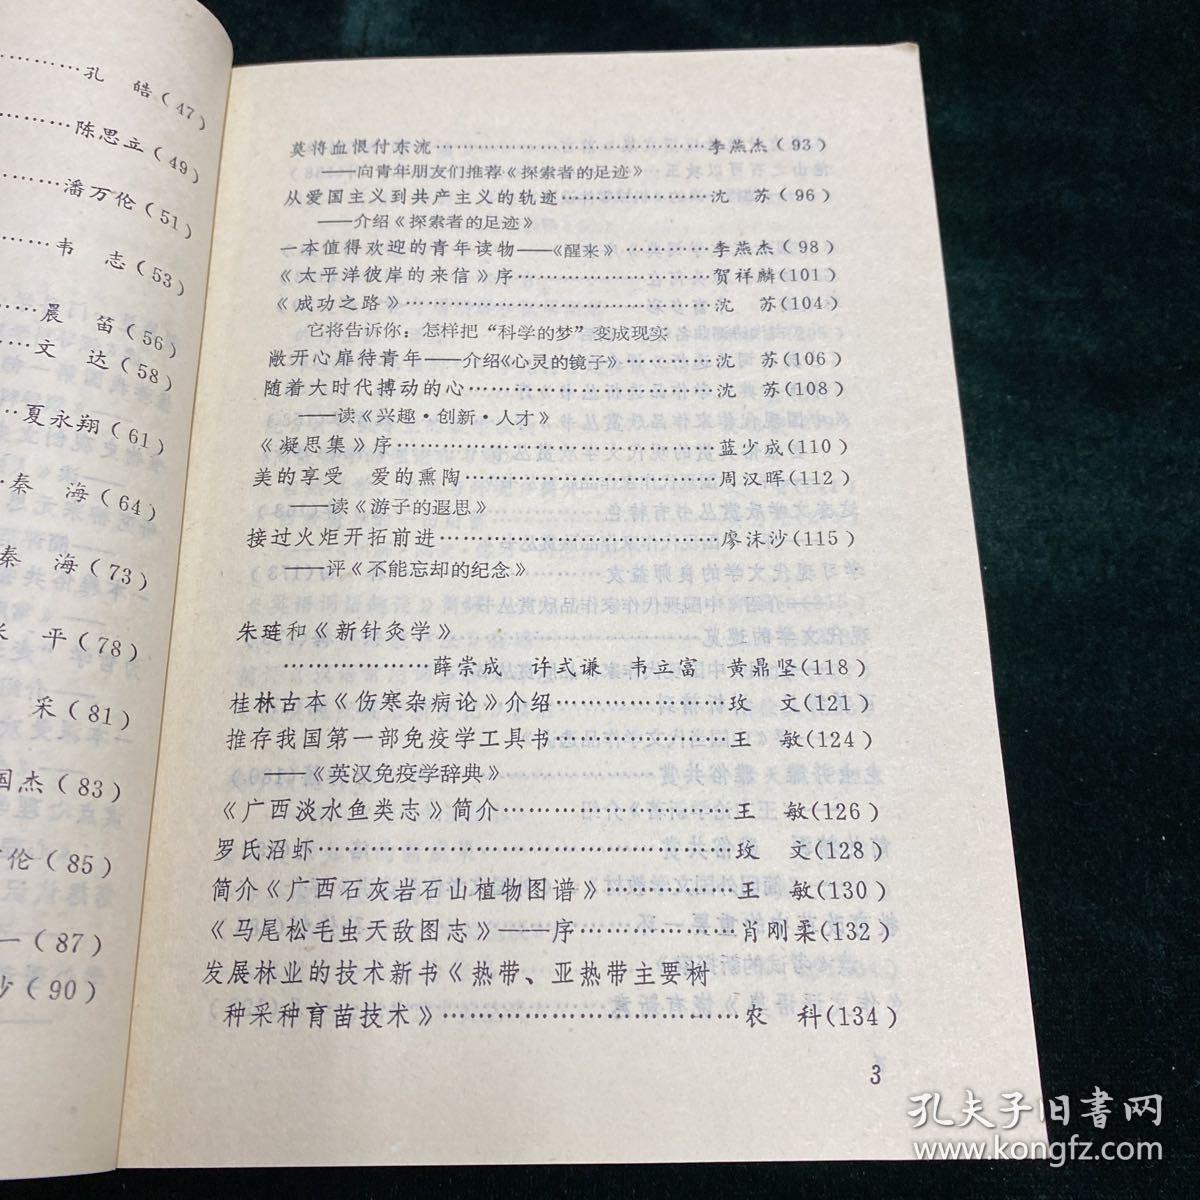 孔　皓(47)
陈思立(49)
潘万伦(51)
韦　志(53)
晨　笛(56)
文　达(58)
夏永翔(61)
秦　海(64)
秦　海(73)
平(78)
采(81)
国杰(83)
伦(85)
一(87)
沙(90)
莫将血恨付东流……………………………李燕杰(93)
——向青年朋友们推荐《探索者的足迹》
从爱国主义到共产主义的轨迹………………沈　苏(96)
——介绍《探索者的足迹》
一本值得欢迎的青年读物——《醒来》…………李燕杰(98)
《太平洋彼岸的来信》序……………………贺祥麟(101)
《成功之路》…………………………………沈　苏(104)
它将告诉你：怎样把“科学的梦”变成现实
敞开心扉待青年——介绍《心灵的镜子》…………沈　苏(106)
随着大时代搏动的心…………………………沈　苏(108)
——读《兴趣·创新·人才》
《凝思集》序…………………………………蓝少成(110)
美的享受　爱的熏陶…………………………周汉晖(112)
——读《游子的遐思》
接过火炬开拓前进……………………………廖沫沙(115)
——评《不能忘却的纪念》
朱琏和《新针灸学》
………………薛崇成　许式谦　韦立富　黄鼎坚(118)
桂林古本《伤寒杂病论》介绍…………………玫　文(121)
推荐我国第一部免疫学工具书…………………王　敏(124)
——《英汉免疫学辞典》
《广西淡水鱼类志》简介………………………王　敏(126)
罗氏沼虾…………………………………………玫　文(128)
简介《广西石灰岩石山植物图谱》……………王　敏(130)
《马尾松毛虫天敌图志》——序………………肖刚柔(132)
发展林业的技术新书《热带、亚热带主要树
种采种育苗技术》………………………………农　科(134)
3
孔夫子旧书网
www.kongfz.com